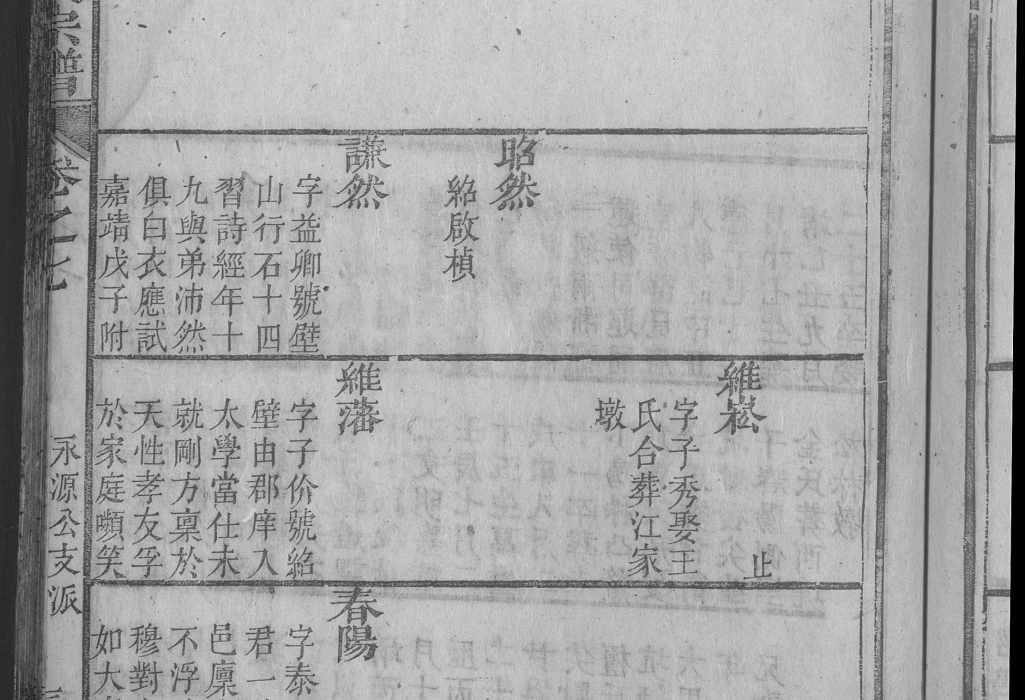 昭然
紹啟楨
謙然
字益卿號壁
山行石十四
習詩經年十
九與弟沛然
俱白衣應試
嘉靖戊子附
維崧
止
字子秀娶王
氏合葬江家
墩
維藩
字子价號絡
壁由郡庠入
太學當仕未
就剛方稟於
天性孝友孚
於家庭嚬笑
春陽
字泰
君一
邑廩
不浮
穆對
如大
宗譜
卷之七
永源公支派